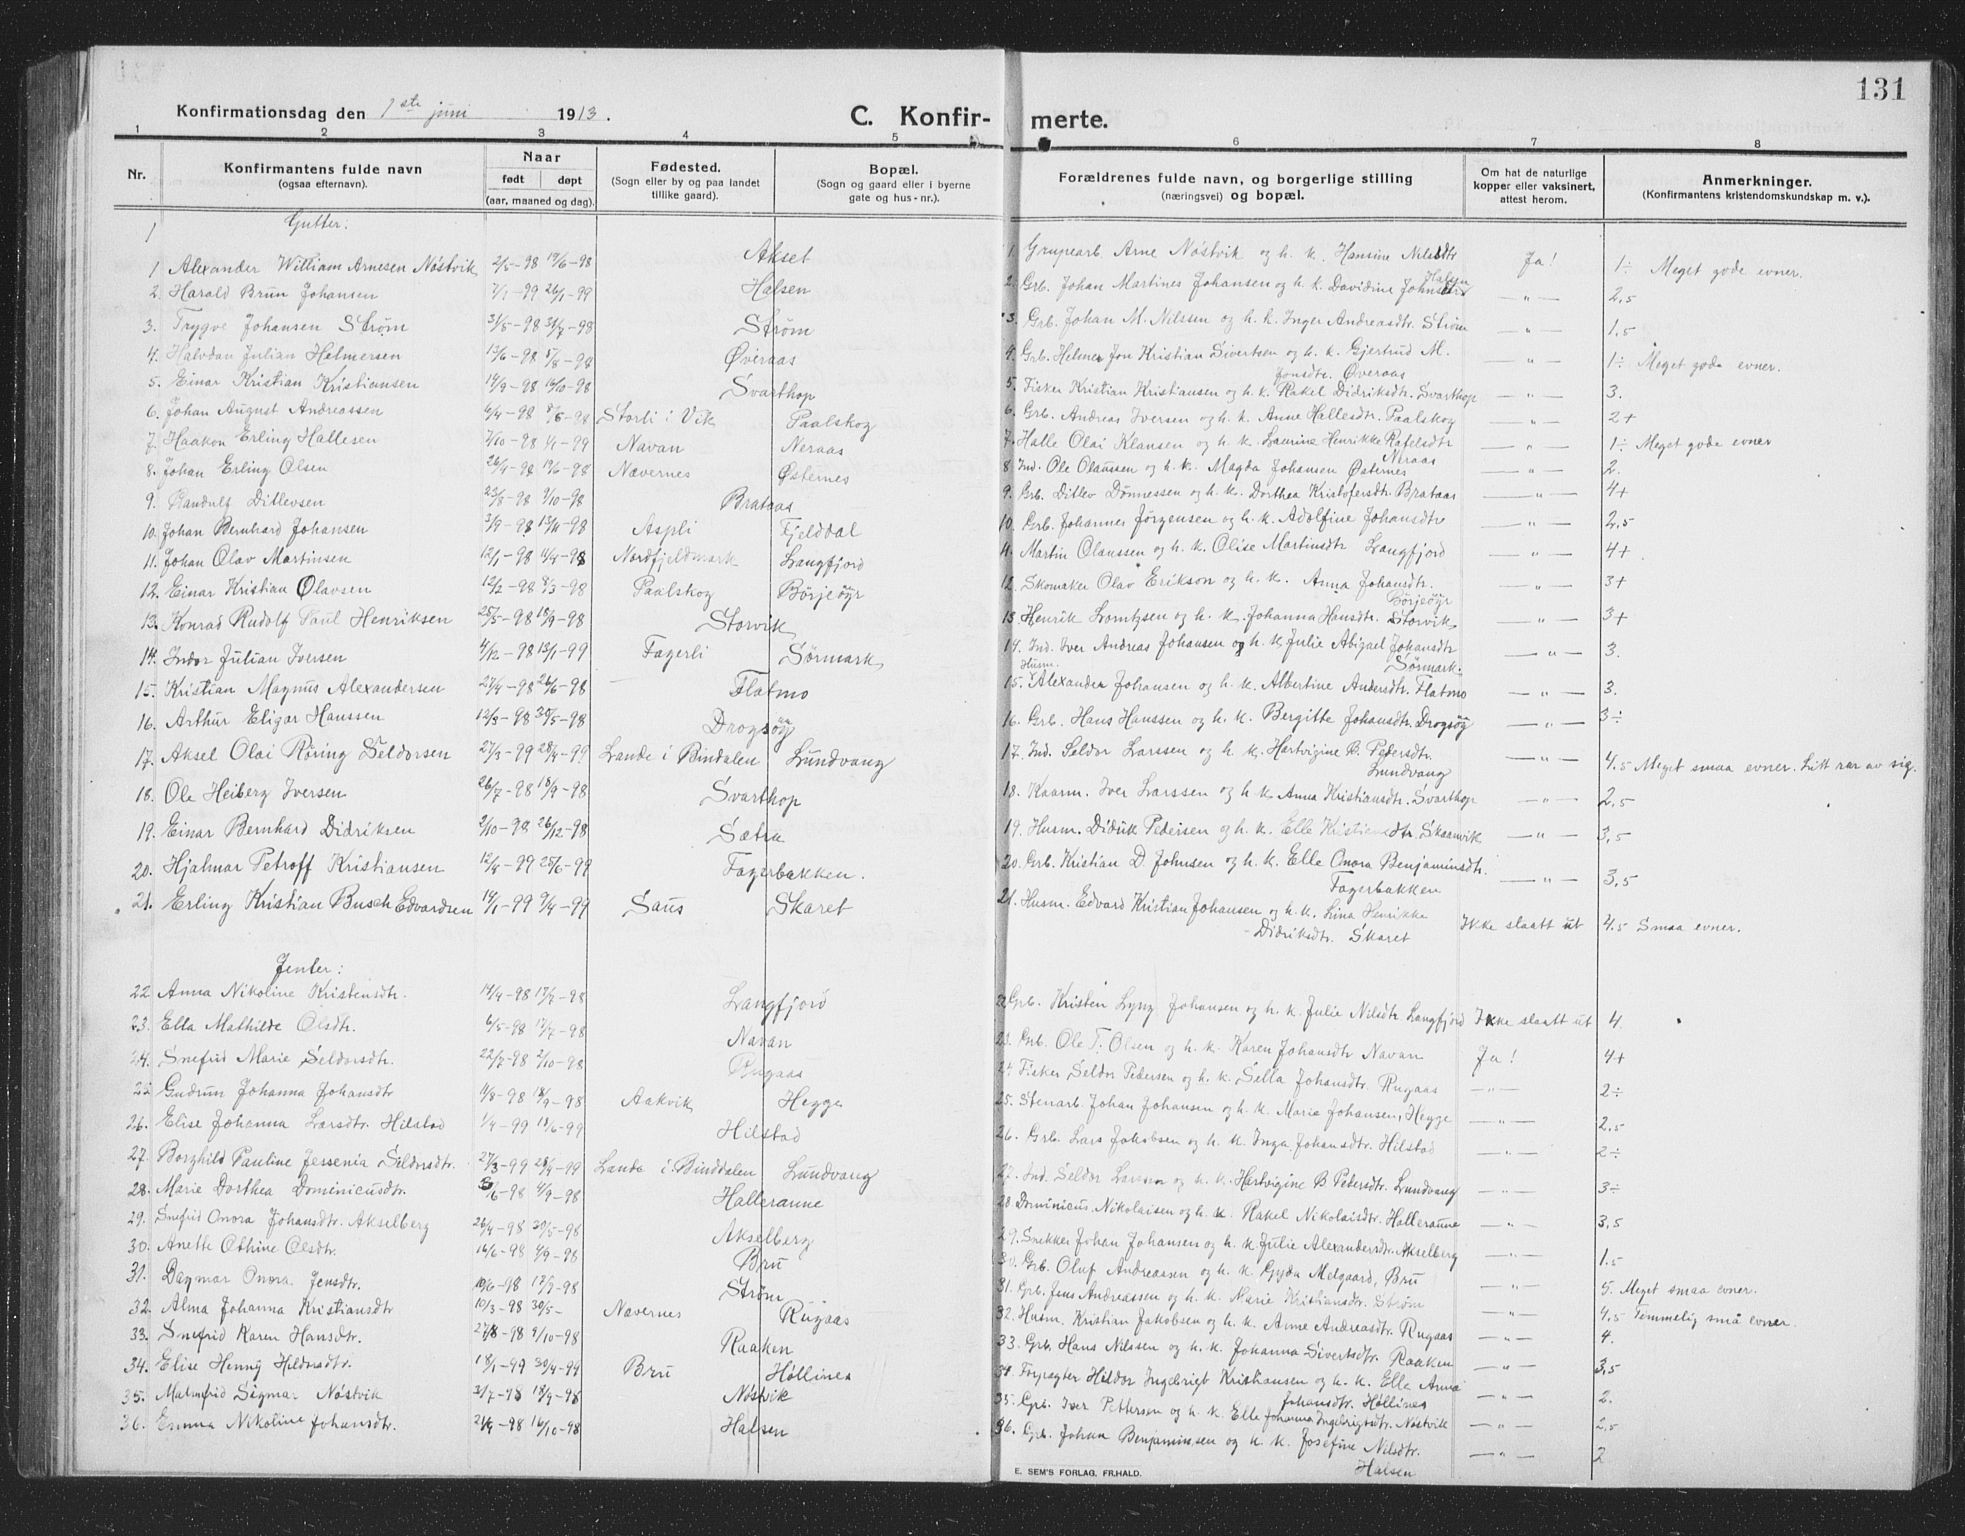 131
Konfirmationsdag den 1ste juni 1913.
C. Konfir- merte.
1 2 3 4 5 6 7 8
Nr.
Konfirmantens fulde navn (ogsaa efternavn).
Naar født døpt (aar, maaned og dag).
Fødested. (Sogn eller by og paa landet tillike gaard).
Bopæl. (Sogn og gaard eller i byerne gate og hus-nr.).
Forældrenes fulde navn, og borgerlige stilling (næringsvei) og bopæl.
Om hat de naturlige kopper eller vaksinert, attest herom.
Anmerkninger. (Konfirmantens kristendomskundskap m. v.).
Gutter:
1 Alexander William Arnesen Nöstvik 2/5-98 19/6-98 Akset 1. Grupearb. Arne Nöstvik og h. k. Hansine Nilsdtr Ja! 1÷ Meget gode evner.
2. Harald Brun Johansen 7/1-99 26/1-99 Halsen 2. Grb. Johan Martines Johansen og h. k. Davidine Johnsdtr Halsen — " — 2,5
3. Trygve Johansen Strøm 31/5-98 31/7-98 Strøm 3. Grb. Johan M. Nilsen og h. k. Inger Andreasdtr. Strøm — " — 1,5
4. Halvdan Julian Helmersen 13/6-98 Øveraas 4. Grb. Helmer Jon Kristian Sivertsen og h. k. Gjertrud M. Jonsdtr. Øveraas — " — 1÷ Meget gode evner.
5. Einar Kristian Kristiansen 14/9-98 16/10-98 Svarthop 5. Fisker Kristian Kristiansen og h. k. Rakel Didriksdtr. Svarthop — " — 3.
6. Johan August Andreassen 6/4-98 Storli i Vik Paalskog 6. Grb. Andreas Iversen og h. k. Anne Hallesdtr. Paalskog — " — 2+
7. Haakon Erling Hallesen 7/10-98 1/4-99 Navan Neraas 7. Halle Olai Klausen og h. k. Laurine Henrikke Rafelsdtr Neraas — " — 1÷ Meget gode evner
8. Johan Erling Olsen 26/4-98 19/6-98 Nævernes Østernes 8. Ind. Ole Olaussen og h. k. Magda Johansen Østernes — " — 2.
9. Randulf Ditlevsen 23/8-98 9/10-98 Brataas 9. Grb. Ditlev Dønnessen og h. k. Dorthea Kristofersdtr. Brataas — " — 4+
10. Johan Bernhard Johansen 3/9-98 13/11-98 Aspli Fjelddal 10. Grb. Johannes Jørgensen og h. k. Adolfine Johansdtr — " — 2,5
11. Johan Olav Martinsen 12/1-98 11/4-98 Nordfjeldmark Langfjord 11. Martin Olaussen og h. k. Olise Martinsdtr Langfjord — " — 4+
12. Einar Kristian Olavsen 12/2-98 8/3-98 Paalskog Börjeöyr 12. Skomaker Olav Erikson og h. k. Anna Johansdtr. Börjeöyr — " — 3+
13. Konrad Rudolf Paul Henriksen 25/5-98 18/9-98 Storvik 13. Henrik Lorntzsen og h. k. Johanna Hansdtr. Storvik — " — 3+
14. Indor Julian Iversen 4/12-98 13/1-99 Fagerli Sörmark 14. Ind. Iver Andreas Johansen og h. k. Julie Abigael Johansdtr Sörmark. — " — 3.
15. Kristian Magnus Alexandersen 27/4-98 26/6-98 Flatmo 15. Husm. Alexander Johansen og h. k. Albertine Andersdtr. Flatmo — " — 3.
16. Arthur Eligar Hanssen 12/3-98 30/5-98 Drogsöy 16. Grb. Hans Hanssen og h. k. Bergitte Johansdtr. Drogsöy — " — 3÷
17. Aksel Olai Röring Seldorsen 27/3-99 28/4-99 Lande i Bindalen Lundvang 17. Ind. Seldor Larssen og h. k. Hartvigine B. Pedersdtr. Lundvang — " — 4,5 Meget smaa evner. Litt rar av sig.
18. Ole Heiberg Iversen 26/7-98 18/9-98 Svarthop 18. Kaarm. Iver Larssen og h. k. Anna Kristiansdtr. Svarthop — " — 2,5
19. Einar Bernhard Didriksen 2/10-98 26/12-98 Sætra 19. Husm. Didrik Pedersen og h. k. Elle Kristiansdtr. Skaanvik — " — 3,5
20. Hjalmar Petroff Kristiansen 12/4-99 25/6-99 Fagerbakken. 20. Grb. Kristian D. Johnsen og h. k. Elle Onora Benjaminsdtr. Fagerbakken — " — 3,5
21. Erling Kristian Busch Edvardsen 14/1-99 9/4-99 Saus Skaret 21. Husm. Edvard Kristian Johansen og h. k. Lina Henrikke Didriksdtr. Skaret Ikke slaatt ut 4.5 Smaa evner.
Jenter:
22 Anna Nikoline Kristensdtr. 14/4-98 17/7-98 Langfjord 22. Grb. Kristen Lyng Johansen og h. k. Julie Nilsdtr Langfjord Ikke slaatt ut 4.
23. Ella Mathilde Olsdtr. 6/5-98 17/7-98 Navan 23. Grb. Ole T. Olsen og h. k. Karen Johansdtr Navan Ja! 4+
24. Snefrid Marie Seldorsdtr. 22/7-98 2/10-98 Rugaas 24. Fisker Seldor Pedersen og h. k. Sella Johansdtr. Rugaas — " — 2÷
25 Gudrun Johanna Johansdtr 4/8-98 18/9-98 Aakvik Hegge 25. Stenarb. Johan Johansen og h. k. Marie Johansen, Hegge — " — 2,5
26. Elise Johanna Larsdtr. Hilstad 1/4-99 18/6-99 Hilstad 26. Grb. Lars Jakobsen og h. k. Inga Johansdtr. Hilstad — " — 2÷
27. Borghild Pauline Jessenia Seldorsdtr. 27/3-99 28/4-99 Lande i Binddalen Lundvang 27. Ind. Seldor Larssen og h. k. Hartvigine B Pedersdtr. Lundvang — " — 3÷
28. Marie Dorthea Dominicusdtr. /6-98 4/9-98 Halleraune 28. Dominicus Nikolaisen og h. k. Rakel Nikolaisdtr. Halleraune — " — 3,5
29. Snefrid Onora Johansdtr. Akselberg 26/4-98 30/5-98 Akselberg 29. Snekker Johan Johansen og h. k. Julie Alexandersdtr. Akselberg — " — 1.5
30. Anette Othine Olsdtr. 16/6-98 4/9-98 Bru 30. Grb. Oluf Andreassen og h. k. Gyda Melgaard, Bru — " — 5. Meget smaa evner.
31. Dagmar Onora Jensdtr. 10/6-98 17/7-98 Strøm 31. Grb. Jens Andreassen og h. k. Marie Kristiansdtr. Strøm — " — 4,5 Temmelig små evner.
32. Alma Johanna Kristiansdtr 10/3-98 30/5- Navernes Rugaas 32. Husm. Kristian Jakobsen og h. k. Anne Andreasdtr. Rugaas — " — 4.
33. Snefrid Karen Hansdtr. 27/8-98 9/10-98 Raaken 33. Grb. Hans Nilssen og h. k. Johanna Sivertsdtr. Raaken — " — 3,5
34. Elise Henny Hildorsdtr. 18/1-99 30/4-99 Bru Höllines 34. Forpagter Hildor Ingebrigt Kristiansen og h. k. Ella Anna Johansdtr. Höllines — " — 2.
35. Malmfrid Sigmar Nöstvik 31/7-98 18/9-98 Nöstvik 35. Grb. Iver Pettersen og h. k. Elle Johanna Ingebrigtsdtr. Nöstvik — " — 2,5
36. Emma Nikoline Johansdtr. 21/9-98 16/10-98 Halsen 36. Grb. Johan Benjaminsen og h. k. Josefine Nilsdtr. Halsen — " — 2
E. SEM'S FORLAG, FR.HALD.